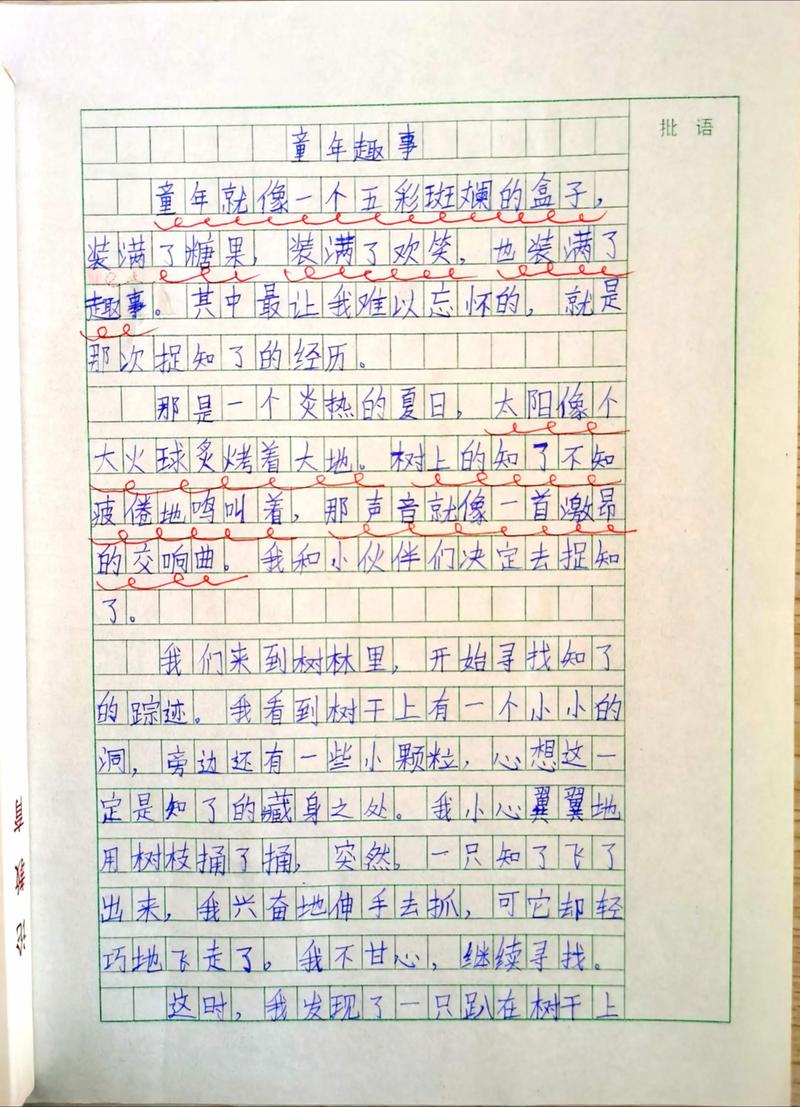 批语
童年趣事
童年就像一个五彩斑斓的盒子，
装满了糖果，装满了欢笑，也装满了
趣事。其中最让我难以忘怀的，就是
那次捉知了的经历。
那是一个炎热的夏日，太阳像个
大火球炙烤着大地。树上的知了不知
疲倦地鸣叫着，那声音就像一首激昂
的交响曲。我和小伙伴们决定去捉知
了。
我们来到树林里，开始寻找知了
的踪迹。我看到树干上有一个小小的
洞，旁边还有一些小颗粒，心想这一
定是知了的藏身之处。我小心翼翼地
用树枝捅了捅，突然，一只知了飞了
出来，我兴奋地伸手去抓，可它却轻
巧地飞走了。我不甘心，继续寻找。
这时，我发现了一只趴在树干上
教育